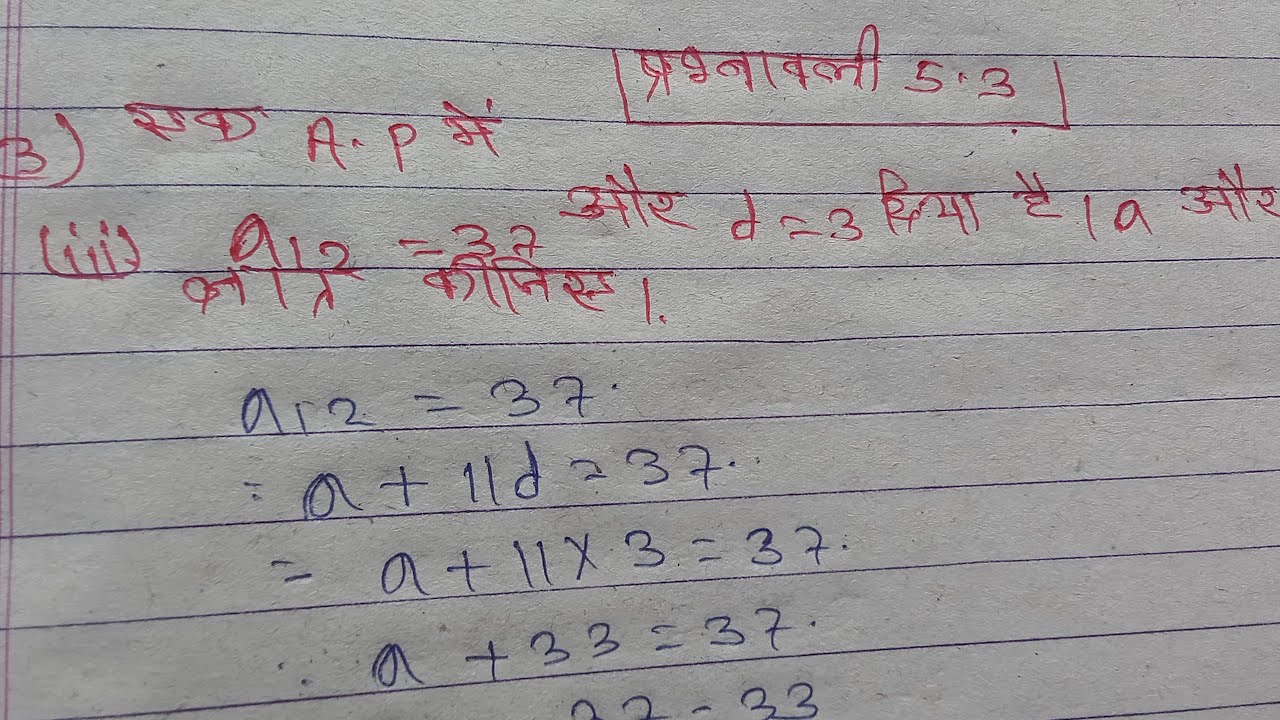 प्रश्नावली 5.3
3) एक A.P में
(iii) a12 = 37 और d = 3 दिया है । a और
ज्ञात कीजिए ।
a12 = 37.
= a + 11d = 37.
= a + 11 × 3 = 37.
: a + 33 = 37.
37 - 33